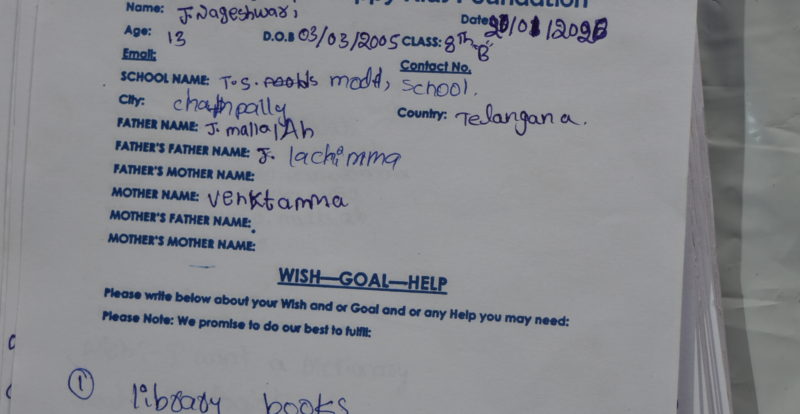 Foundation
Name: J. Nageshwari
Age: 13 D.O.B 03/03/2005 CLASS: 8Th "B"
Email: Contact No.
SCHOOL NAME: T.S. model, School.
City: Country: Telangana.
FATHER NAME: J. mallaiAh
FATHER'S FATHER NAME: J. lachimma
FATHER'S MOTHER NAME:
MOTHER NAME: venktamma
MOTHER'S FATHER NAME:
MOTHER'S MOTHER NAME:
WISH—GOAL—HELP
Please write below about your Wish and or Goal and or any Help you may need:
Please Note: We promise to do our best to fulfil:
① library books